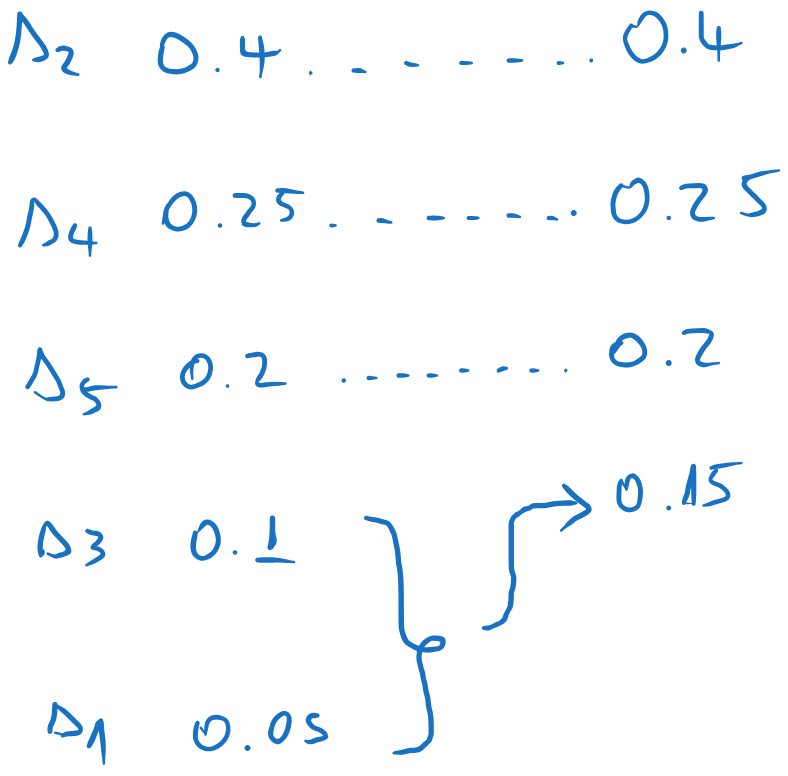 Δ2 0.4 . - - - - - . 0.4
Δ4 0.25 . - - - - - . 0.25
Δ5 0.2 . - - - - - . 0.2
Δ3 0.1 0.15
Δ1 0.05